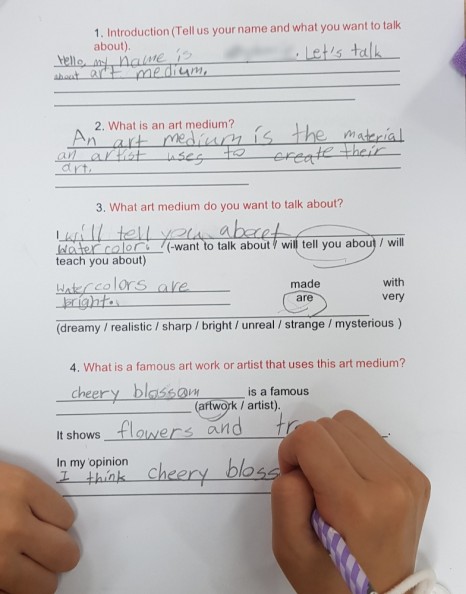 1. Introduction (Tell us your name and what you want to talk
about).
Hello, my name is . Let's talk
about art medium.
2. What is an art medium?
An art medium is the material
an artist uses to create their
art.
3. What art medium do you want to talk about?
I will tell you about
watercolors (-want to talk about / will tell you about / will
teach you about)
Watercolors are made with
bright. are very
(dreamy / realistic / sharp / bright / unreal / strange / mysterious )
4. What is a famous art work or artist that uses this art medium?
cheery blossom is a famous
(artwork / artist).
It shows flowers and tr
In my opinion
I think cheery bloss